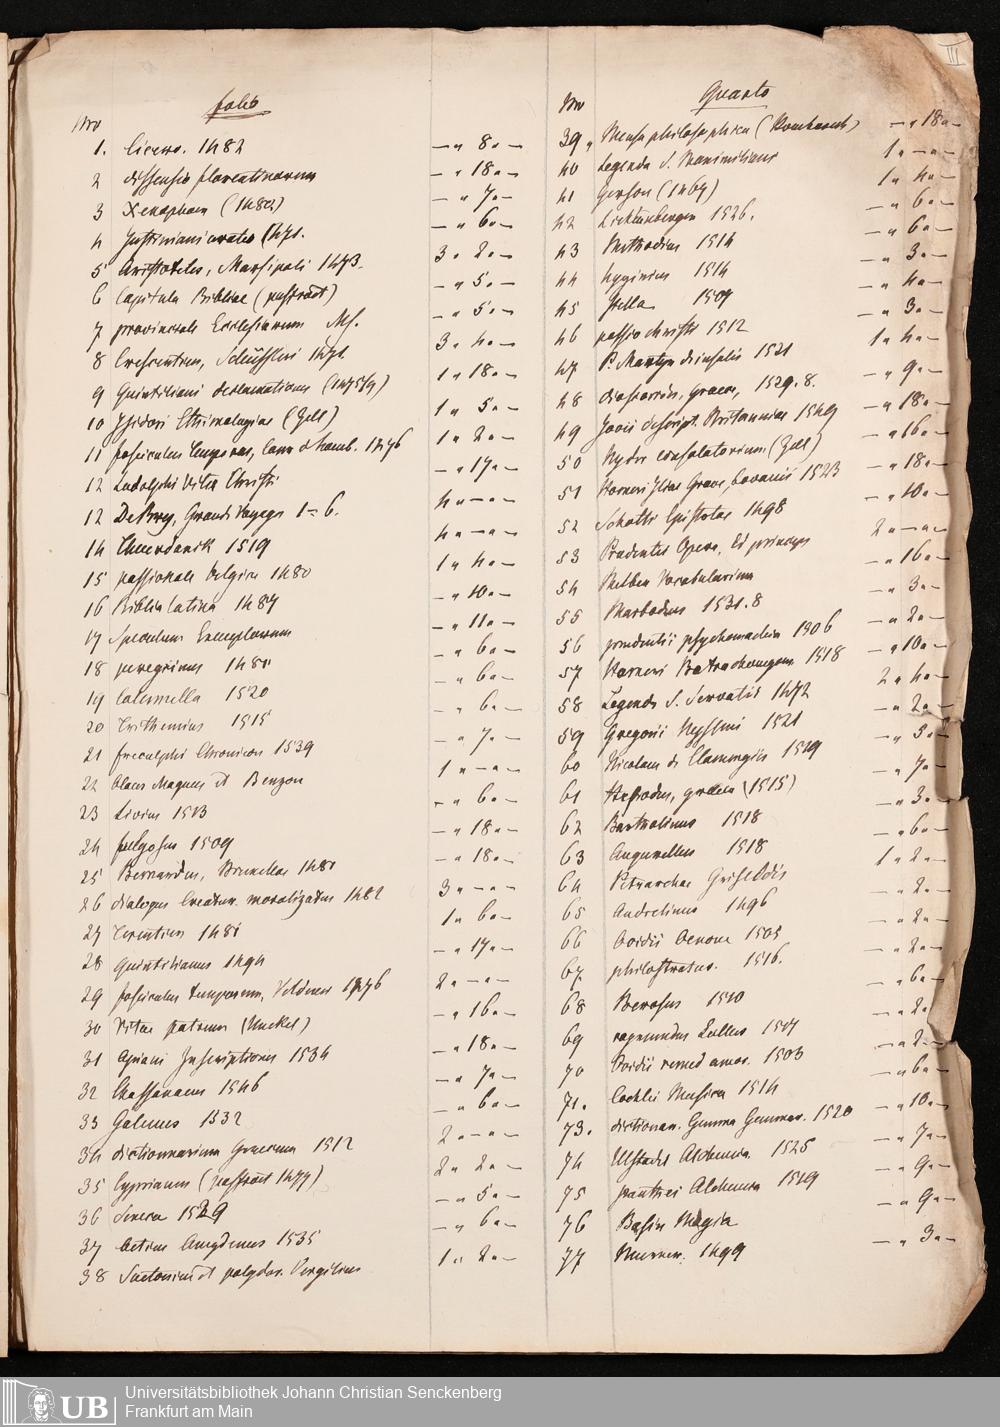 III
folio
Nro
1. Cicero. 1482 — " 8 " —
2 dissensio florentinorum — " 18 " —
3 Xenophon (1482) — " 7 " —
4 Justiniani oratio 1471. — " 6 " —
5 Aristoteles, Marsipoli 1473. 3 " 2 " —
6 Capitula Bibliae — " 5 " —
7 provinciale Ecclesiarum Ms. — " 5 " —
8 Crescentius, Schüssleri 1471 3 " 4 " —
9 Quintiliani declamationes 1 " 18 " —
10 Isidori Ethimologiae (Zell) 1 " 5 " —
11 fasciculus temporum, 1476 1 " 2 " —
12 Ludolphi Vita Christi — " 17 " —
12 De Brey, Grands Voyages 1–6. 4 " — " —
14 Theuerdank 1519 4 " — " —
15 passionale belgice 1480 1 " 4 " —
16 Biblia latina 1487 — " 10 " —
17 Speculum Exemplorum — " 11 " —
18 peregrinus 1481 — " 6 " —
19 Columella 1520 — " 6 " —
20 Trithemius 1515 — " 6 " —
21 freculphi Chronicon 1539 — " 7 " —
22 Olaus Magnus et Benzon 1 " — " —
23 Livius 1513 — " 6 " —
24 fulgosus 1509 — " 18 " —
25 Bernardus, Bruxellae 1481 — " 18 " —
26 dialogus Creatur. moralizatus 1482 3 " — " —
27 Terentius 1481 1 " 6 " —
28 Quintilianus 1494 — " 17 " —
29 fasciculus temporum, Veldener 1476 2 " — " —
30 Vitae patrum — " 16 " —
31 Apiani Inscriptiones 1534 — " 18 " —
32 Chassanaeus 1546 — " 7 " —
33 Galenus 1532 — " 6 " —
34 dictionarium Graecum 1512 2 " — " —
35 Cyprianus 2 " 2 " —
36 Seneca 1529 — " 5 " —
37 Aetius Amydenus 1535 — " 6 " —
38 Suetonius et polydor. Vergilius 1 " 2 " —
Quarto
Nro
39 " Mensa philosophica — " 18 " —
40 Legenda S. Maximiliani 1 " — " —
41 Gerson (1469) 1 " 4 " —
42 Lichtenberger 1526. — " 6 " —
43 Methodius 1514 — " 6 " —
44 hyginus 1514 — " 3 " —
45 Stella 1509 — " 4 " —
46 passio christi 1512 — " 3 " —
47 P. Martyr de insulis 1521 1 " 4 " —
48 dioscorides, graece, 1529. 8. — " 9 " —
49 Jovii descript. Britanniae 1549 — " 18 " —
50 Nyder consolatorium (Zell) — " 16 " —
51 Homeri Ilias Graece, Lovanii 1523 — " 18 " —
52 Schotti Epistolae 1498 — " 10 " —
53 Prudentii Opera, Ed princeps 2 " — " —
54 Melber Vocabularium — " 16 " —
55 Marbodeus 1531. 8 — " 3 " —
56 prudentii psychomachia 1506 — " 2 " —
57 Homeri Batrachomyom. 1518 — " 10 " —
58 Legenda S. Servatii 1472 2 " 4 " —
59 Gregorii Nysseni 1521 — " 2 " —
60 Nicolaus de Clamengiis 1519 — " 5 " —
61 Hesiodus, graece (1515) — " 7 " —
62 Bartholinus 1518 — " 3 " —
63 Augurellus 1518 — " 6 " —
64 Petrarchae Griseldis 1 " 2 " —
65 Andrelinus 1496 — " 2 " —
66 Ovidii Oenone 1505 — " 2 " —
67 philostratus. 1516. — " 2 " —
68 Berosus 1510 — " 6 " —
69 raymundus Lullus — " 2 "
70 Ovidii remed amor. 1503 — " 2 " —
71. Cochlei Musica 1514 — " 6 " —
73. dictionar. Gemma Gemmar. 1520 — " 10 " —
74 Ulstadii Alchemia 1525 — " 7 " —
75 panthei Alchemia 1519 — " 9 " —
76 Basin Magia — " 9 " —
77 Murner. 1499 — " 3 " —
UB
Universitätsbibliothek Johann Christian Senckenberg
Frankfurt am Main